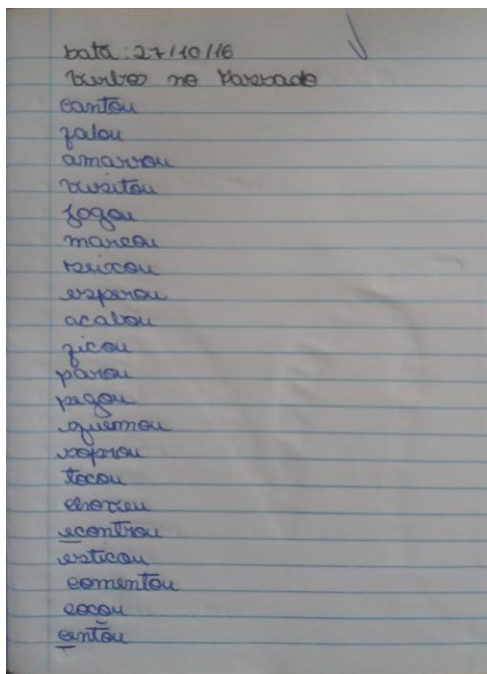 Data : 27/10/16
Verbos no Passado
cantou
falou
amarrou
visitou
jogou
marcou
esperou
acabou
ficou
parou
pegou
quemou
soprou
tocou
choveu
econtrou
esticou
comentou
cocou
centou